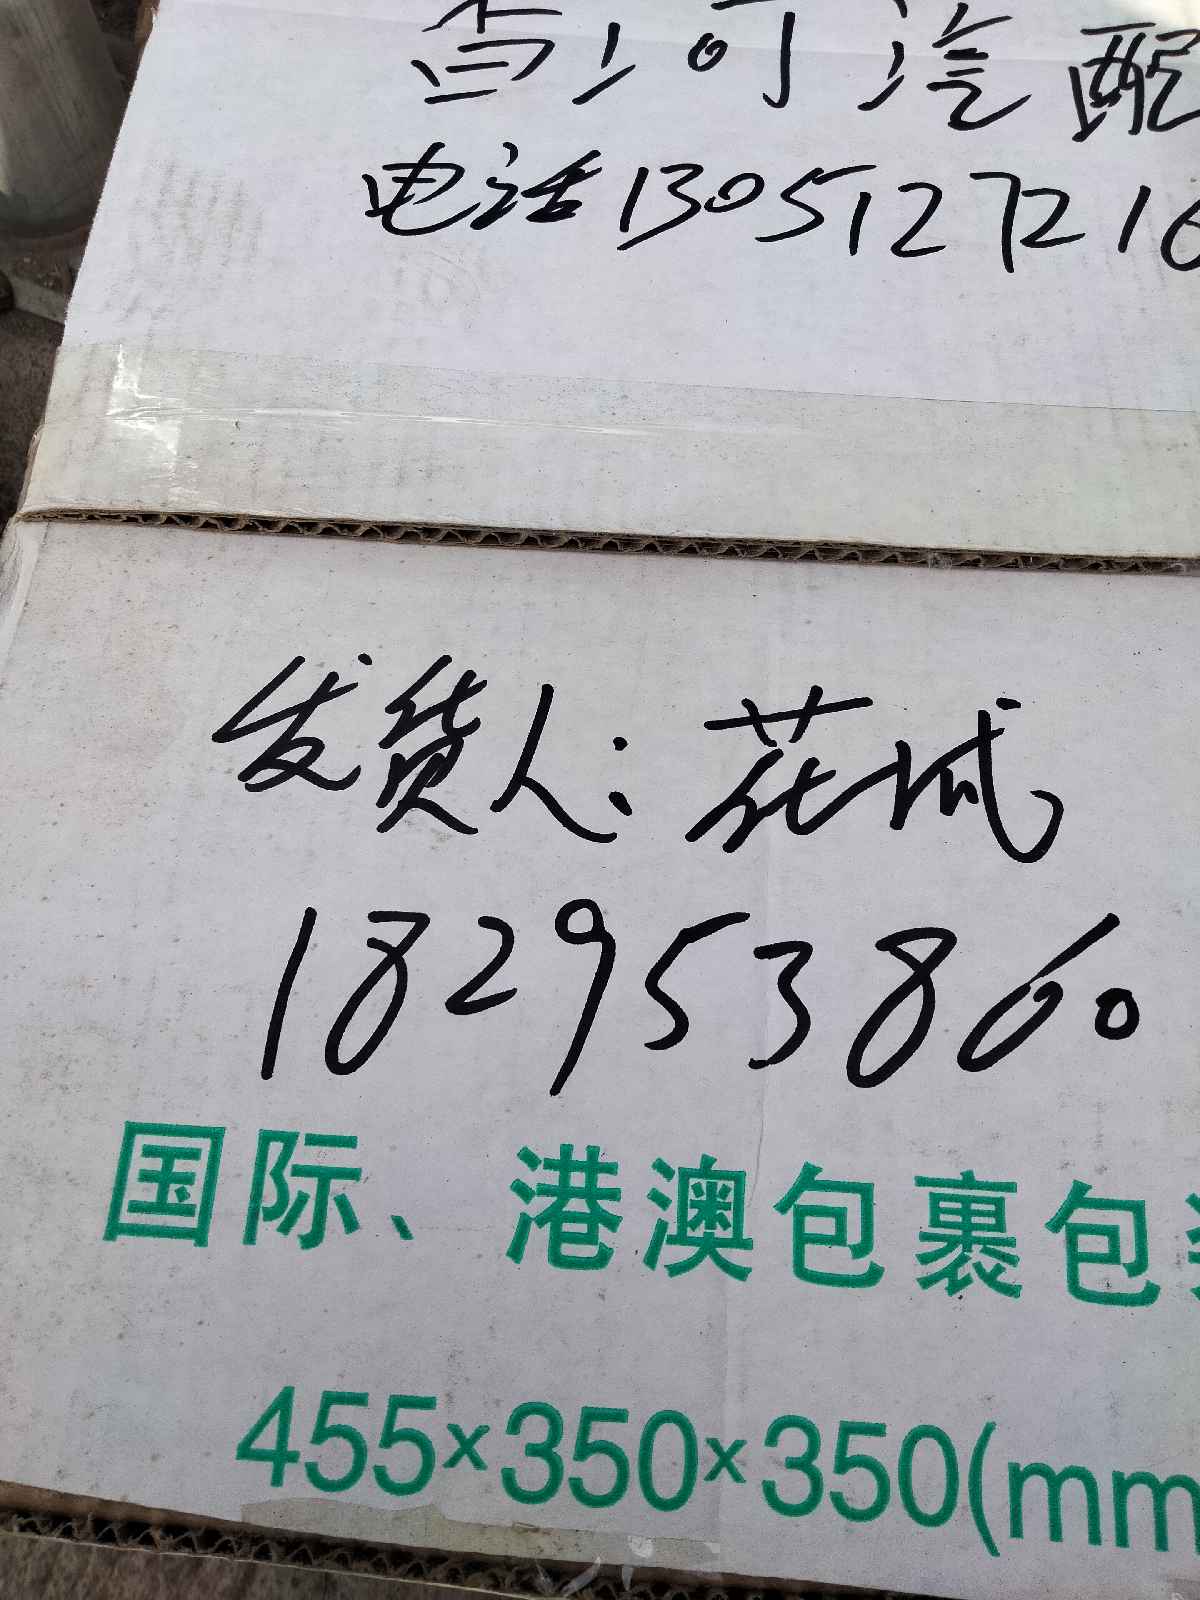 汽配
电话1305127216
发货人：花斌
18295386o
国际、港澳包裹包装
455×350×350(mm